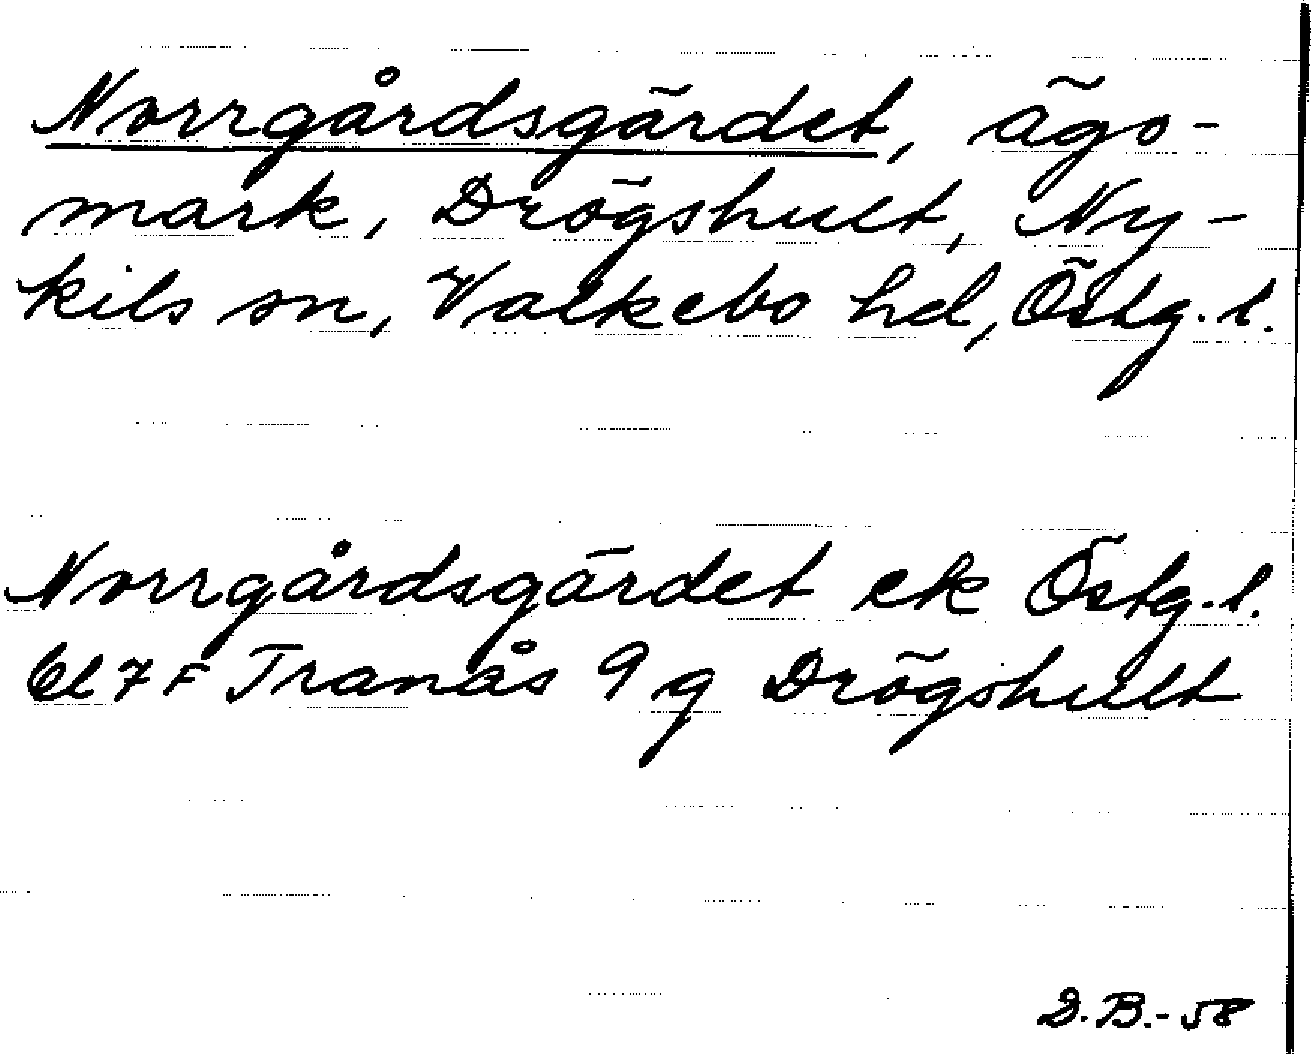 Norrgårdsgärdet, ägo-
mark, Drögshult, Ny-
kils sn, Valkebo hd, Östg. l.
Norrgårdsgärdet ek Östg. l.
bl 7 F Tranås 9 g Drögshult
D.B.-58